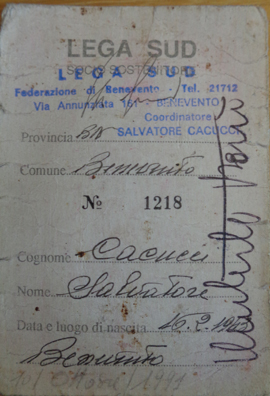 LEGA SUD
SOCIO SOSTENITORE
LEGA SUD
Federazione di Benevento Tel. 21712
Via Annunziata 161 BENEVENTO
Coordinatore
SALVATORE CACUCCI
Provincia BN
Comune Benevento
№ 1218
Cognome Cacucci
Nome Salvatore
Data e luogo di nascita
Benevento